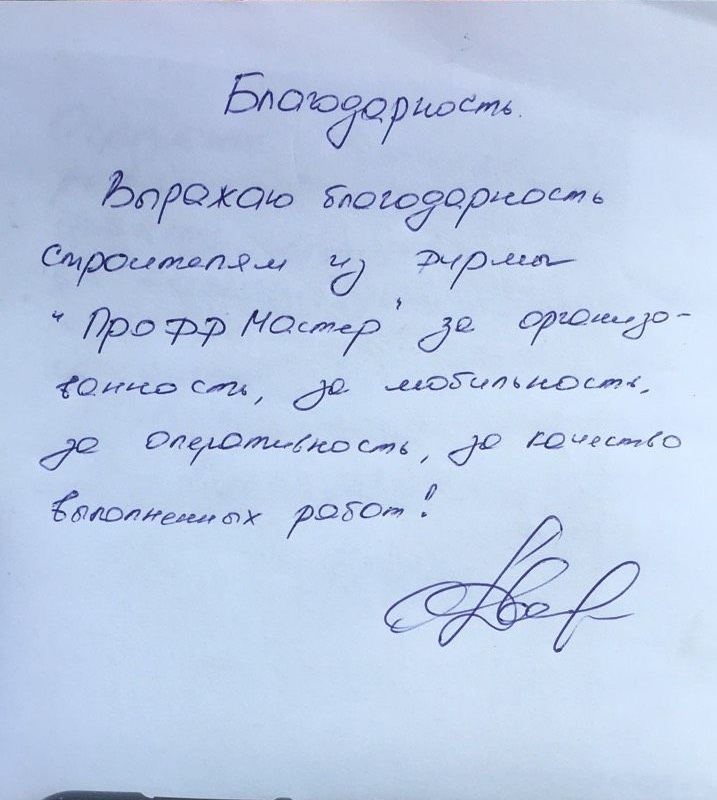 Благодарность.
Выражаю благодарность
строителям из фирмы
"Профф Мастер" за организо-
ванность, за мобильность,
за оперативность, за качество
выполненных работ!